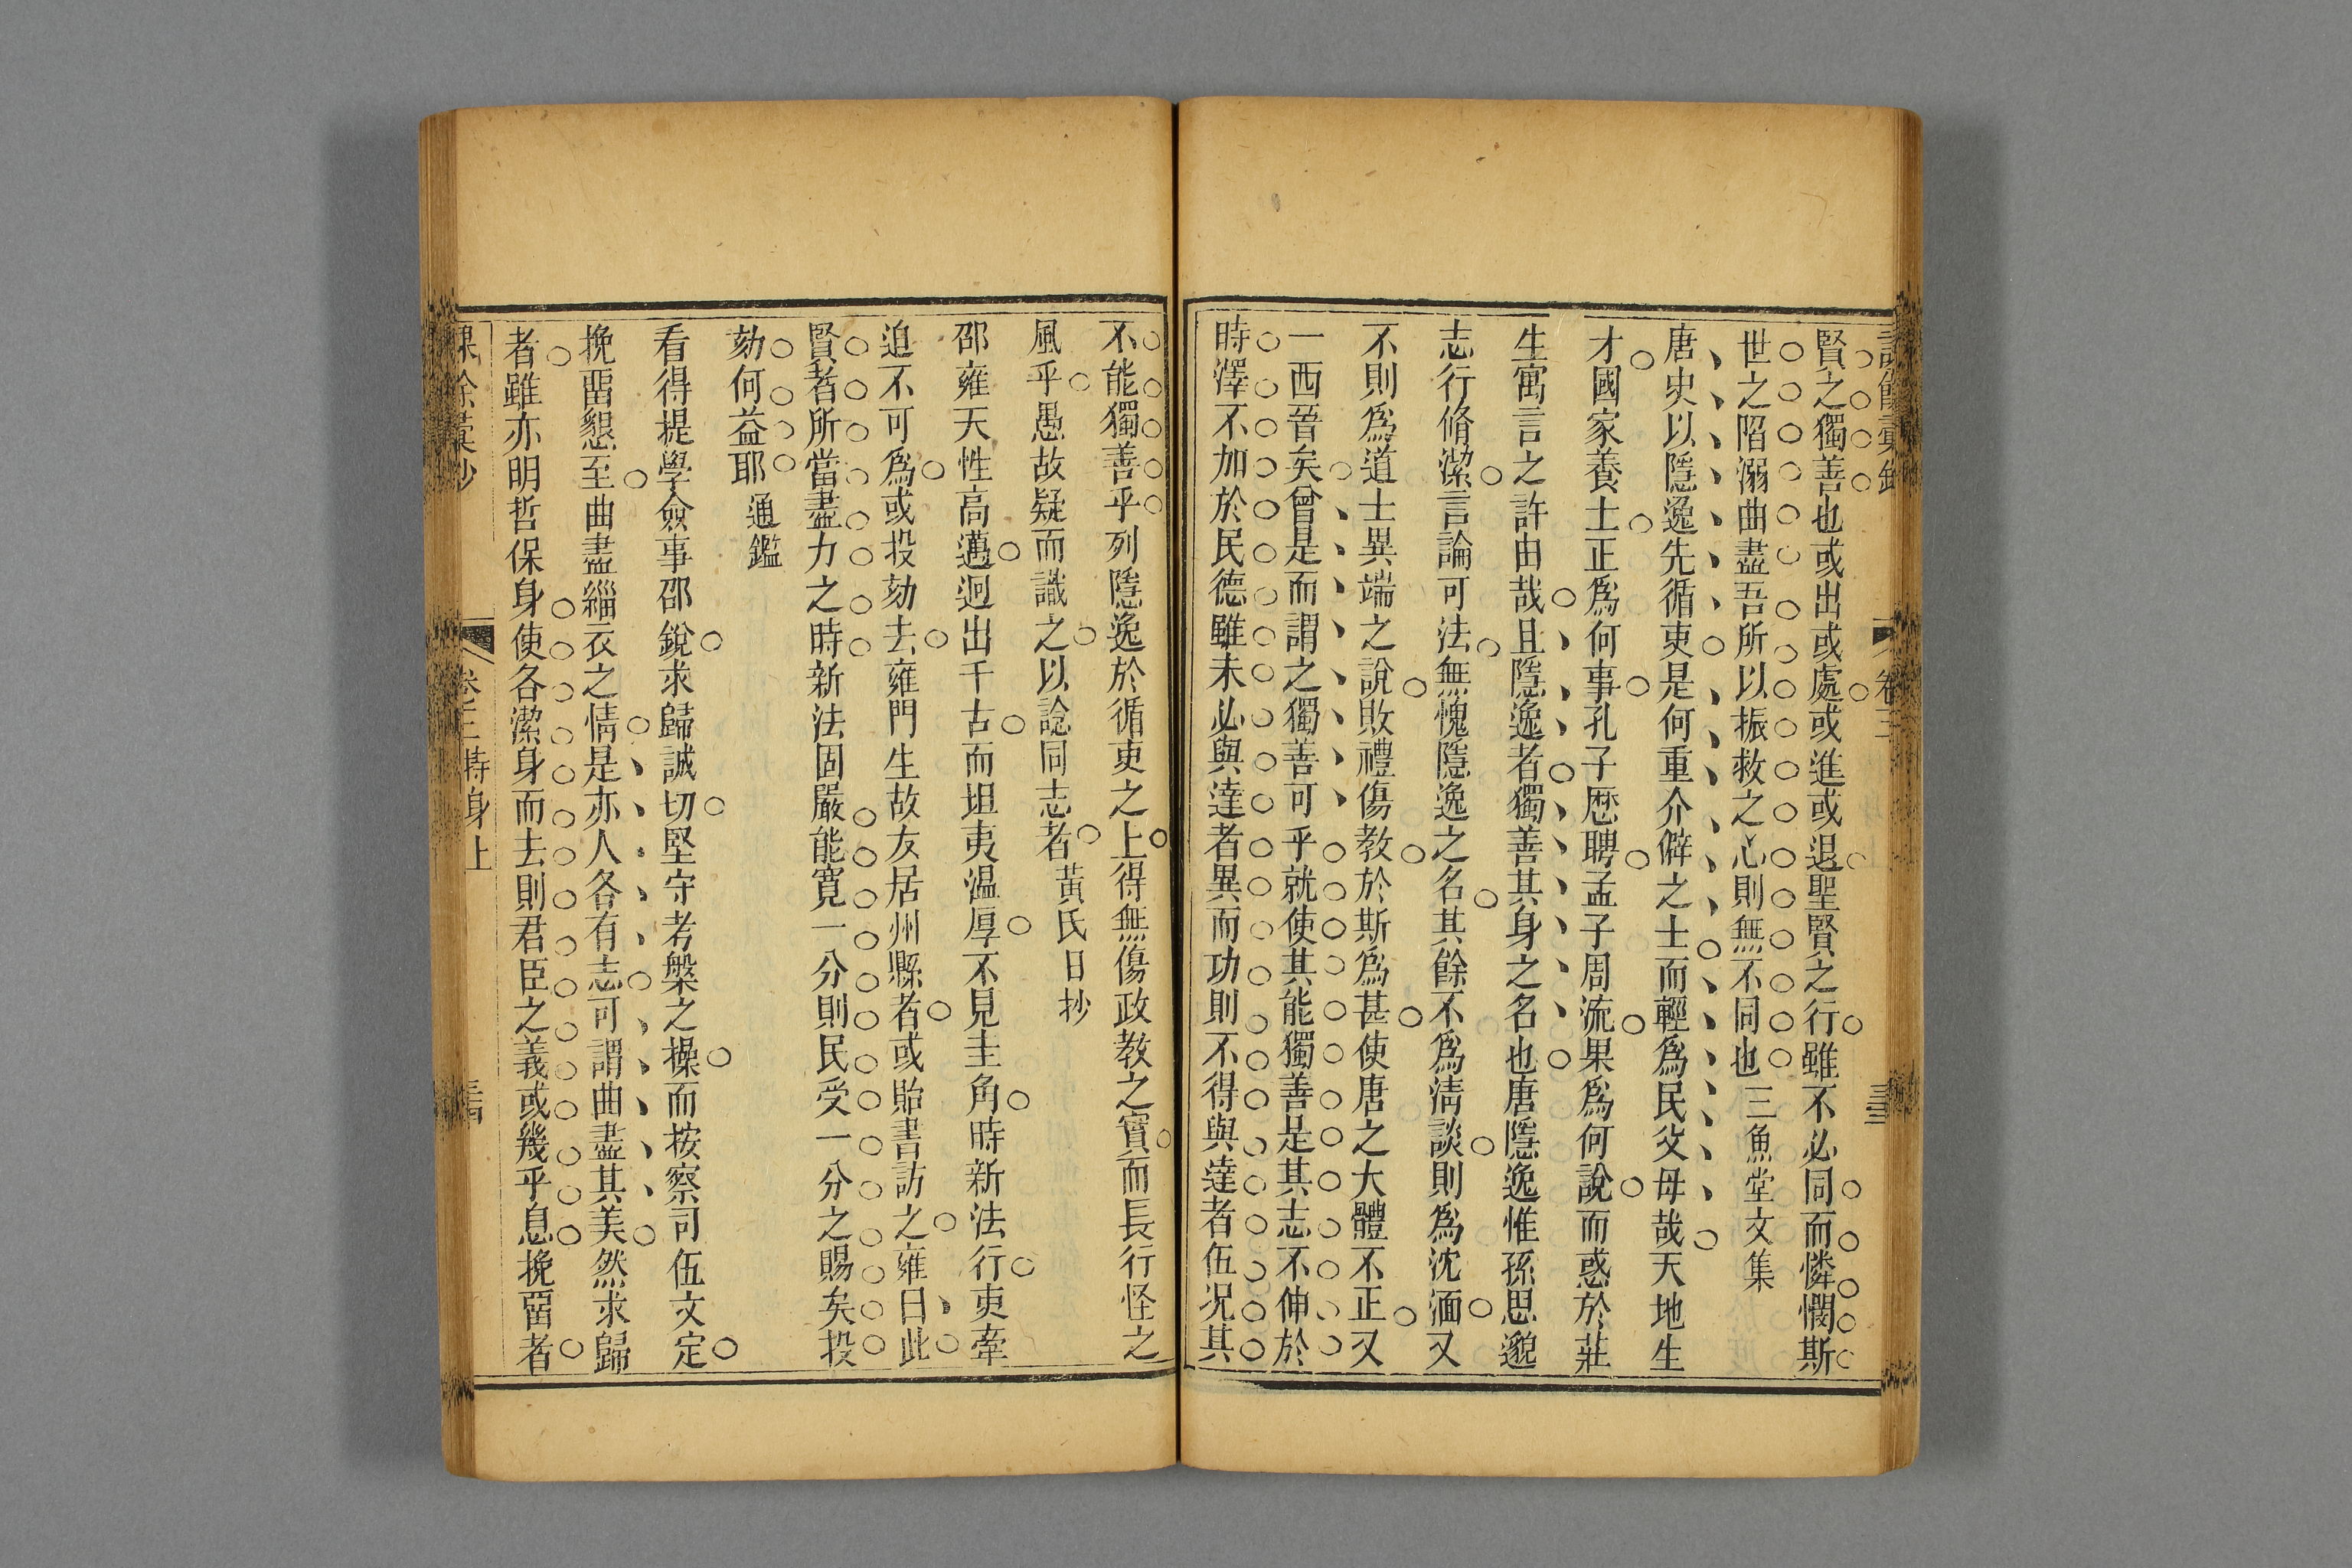 賢之獨善也或出或處或進或退聖賢之行雖不必同而憐憫斯
世之陷溺曲盡吾所以振救之心則無不同也三魚堂文集
唐史以隱逸先循吏是何重介僻之士而輕爲民父母哉天地生
才國家養士正爲何事孔子歷聘孟子周流果爲何說而惑於莊
生寓言之許由哉且隱逸者獨善其身之名也唐隱逸惟孫思邈
志行脩潔言論可法無愧隱逸之名其餘不爲清談則爲沈湎又
不則爲道士異端之說敗禮傷教於斯爲甚使唐之大體不正又
一西晉矣曾是而謂之獨善可乎就使其能獨善是其志不伸於
時澤不加於民德雖未必與達者異而功則不得與達者伍况其
不能獨善乎列隱逸於循吏之上得無傷政教之實而長行怪之
風乎愚故疑而識之以諗同志者黃氏日抄
邵雍天性高邁迥出千古而坦夷溫厚不見圭角時新法行吏牽
迫不可爲或投劾去雍門生故友居州縣者或貽書訪之雍曰此
賢者所當盡力之時新法固嚴能寬一分則民受一分之賜矣投
劾何益耶通鑑
看得提學僉事邵銳求歸誠切堅守考槃之操而按察司伍文定
挽留懇至曲盡緇衣之情是亦人各有志可謂曲盡其美然求歸
者雖亦明哲保身使各潔身而去則君臣之義或幾乎息挽留者
卷三 持身上